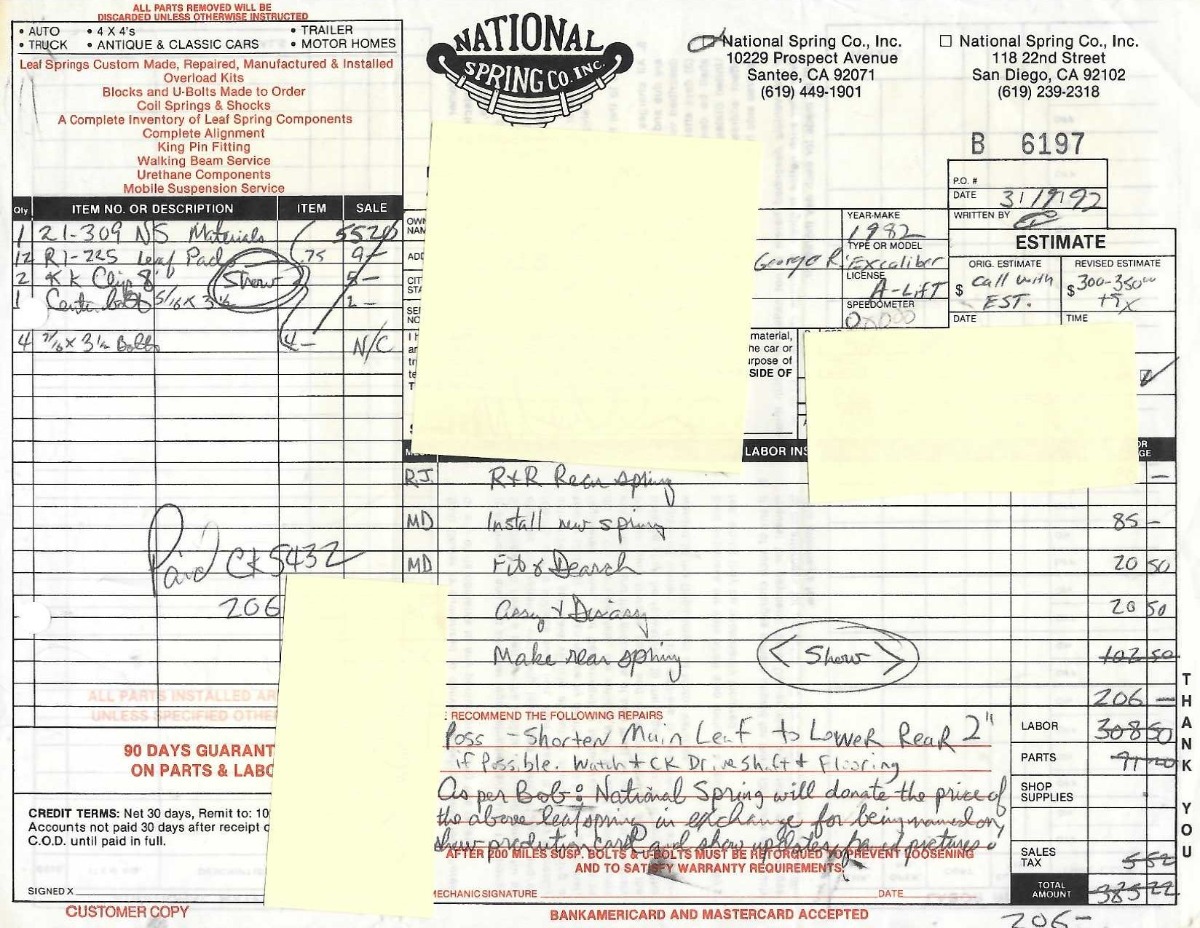 ALL PARTS REMOVED WILL BE
DISCARDED UNLESS OTHERWISE INSTRUCTED
• AUTO • 4 X 4's • TRAILER
• TRUCK • ANTIQUE & CLASSIC CARS • MOTOR HOMES
Leaf Springs Custom Made, Repaired, Manufactured & Installed
Overload Kits
Blocks and U-Bolts Made to Order
Coil Springs & Shocks
A Complete Inventory of Leaf Spring Components
Complete Alignment
King Pin Fitting
Walking Beam Service
Urethane Components
Mobile Suspension Service
NATIONAL
SPRING CO. INC.
National Spring Co., Inc.
10229 Prospect Avenue
Santee, CA 92071
(619) 449-1901
National Spring Co., Inc.
118 22nd Street
San Diego, CA 92102
(619) 239-2318
B 6197
P.O. #
DATE 3/19/92
WRITTEN BY
YEAR-MAKE
1982
TYPE OR MODEL
George R. Excaliber
LICENSE
A-LIFT
SPEEDOMETER
ESTIMATE
ORIG. ESTIMATE REVISED ESTIMATE
$ call with EST.
$ 300-350
DATE TIME
Qty ITEM NO. OR DESCRIPTION ITEM SALE
1 21-309 N/S Materials 55 20
12 R1-225 Leaf Pads .75 9 -
2 KK Clip 8" 5 -
1 Center bolt 5/16 x 3 1/2 2 -
Show
4 7/16 x 3 1/2 Bolts 4 - N/C
material,
the car or
rpose of
SIDE OF
LABOR INS
R.J. R+R Rear spring -
MD Install new spring 85 -
MD Fit & Dearch 20 50
Assy + Disassy 20 50
Make rear spring < Show > 102 50
206 -
Paid CK 5432
206
ALL PARTS INSTALLED AR
UNLESS SPECIFIED OTHE
90 DAYS GUARANT
ON PARTS & LABO
CREDIT TERMS: Net 30 days, Remit to: 10
Accounts not paid 30 days after receipt o
C.O.D. until paid in full.
SIGNED X
CUSTOMER COPY
RECOMMEND THE FOLLOWING REPAIRS
Poss - Shorten Main Leaf to Lower Rear 2"
if Possible. Watch + CK Driveshift + Flooring
As per Bob: National Spring will donate the price of
the above leaf spring in exchange for being named on
show production card and show updates, paid pictures.
AFTER 200 MILES SUSP. BOLTS & U-BOLTS MUST BE RETORQUED TO PREVENT LOOSENING
AND TO SATISFY WARRANTY REQUIREMENTS.
MECHANIC SIGNATURE DATE
BANKAMERICARD AND MASTERCARD ACCEPTED
LABOR 308 50
PARTS 71 20
SHOP
SUPPLIES
SALES
TAX 5 52
TOTAL
AMOUNT 385 22
206-
THANK YOU